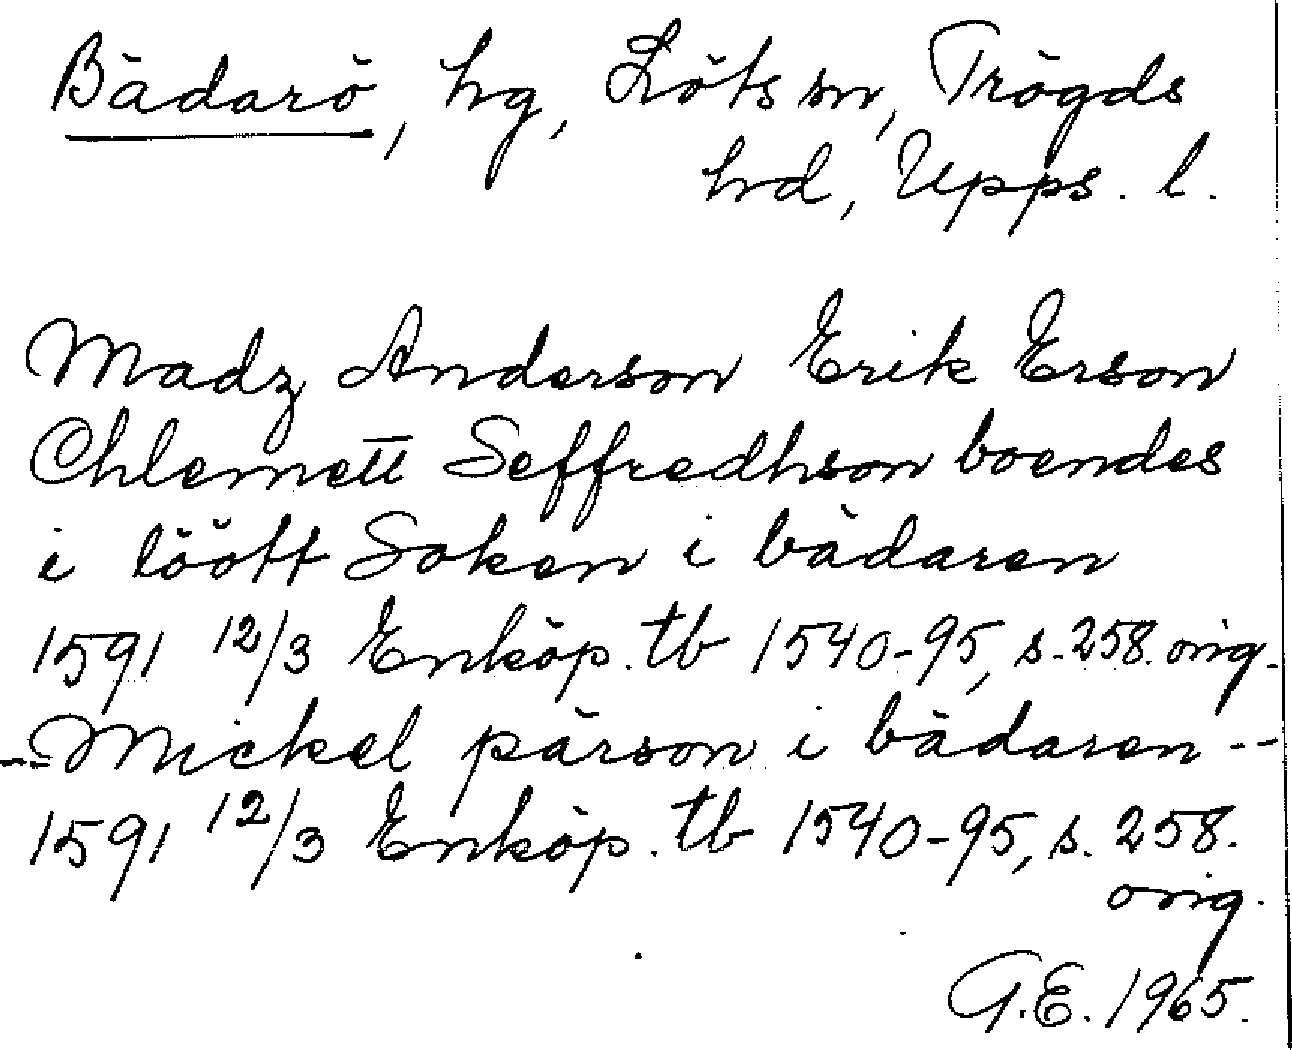 Bådarö, hg, Löts sn, Trögds
hd, Upps. l.
Madz Anderson Erik Erson
Chlemett Seffredhson boendes
i löött Soken i bådaren
1591 12/3 Enköp. tb 1540-95, s. 258. orig.
-- Mickel pärson i bådaren --
1591 12/3 Enköp. tb 1540-95, s. 258.
orig.
G.E. 1965.